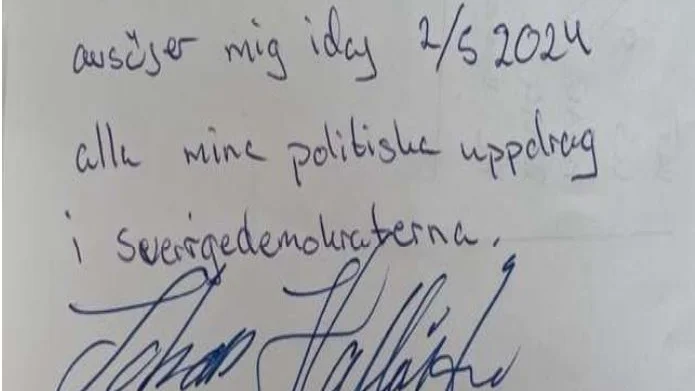 avsäger mig idag 2/5 2024
alla mina politiska uppdrag
i Sverigedemokraterna.
Johan